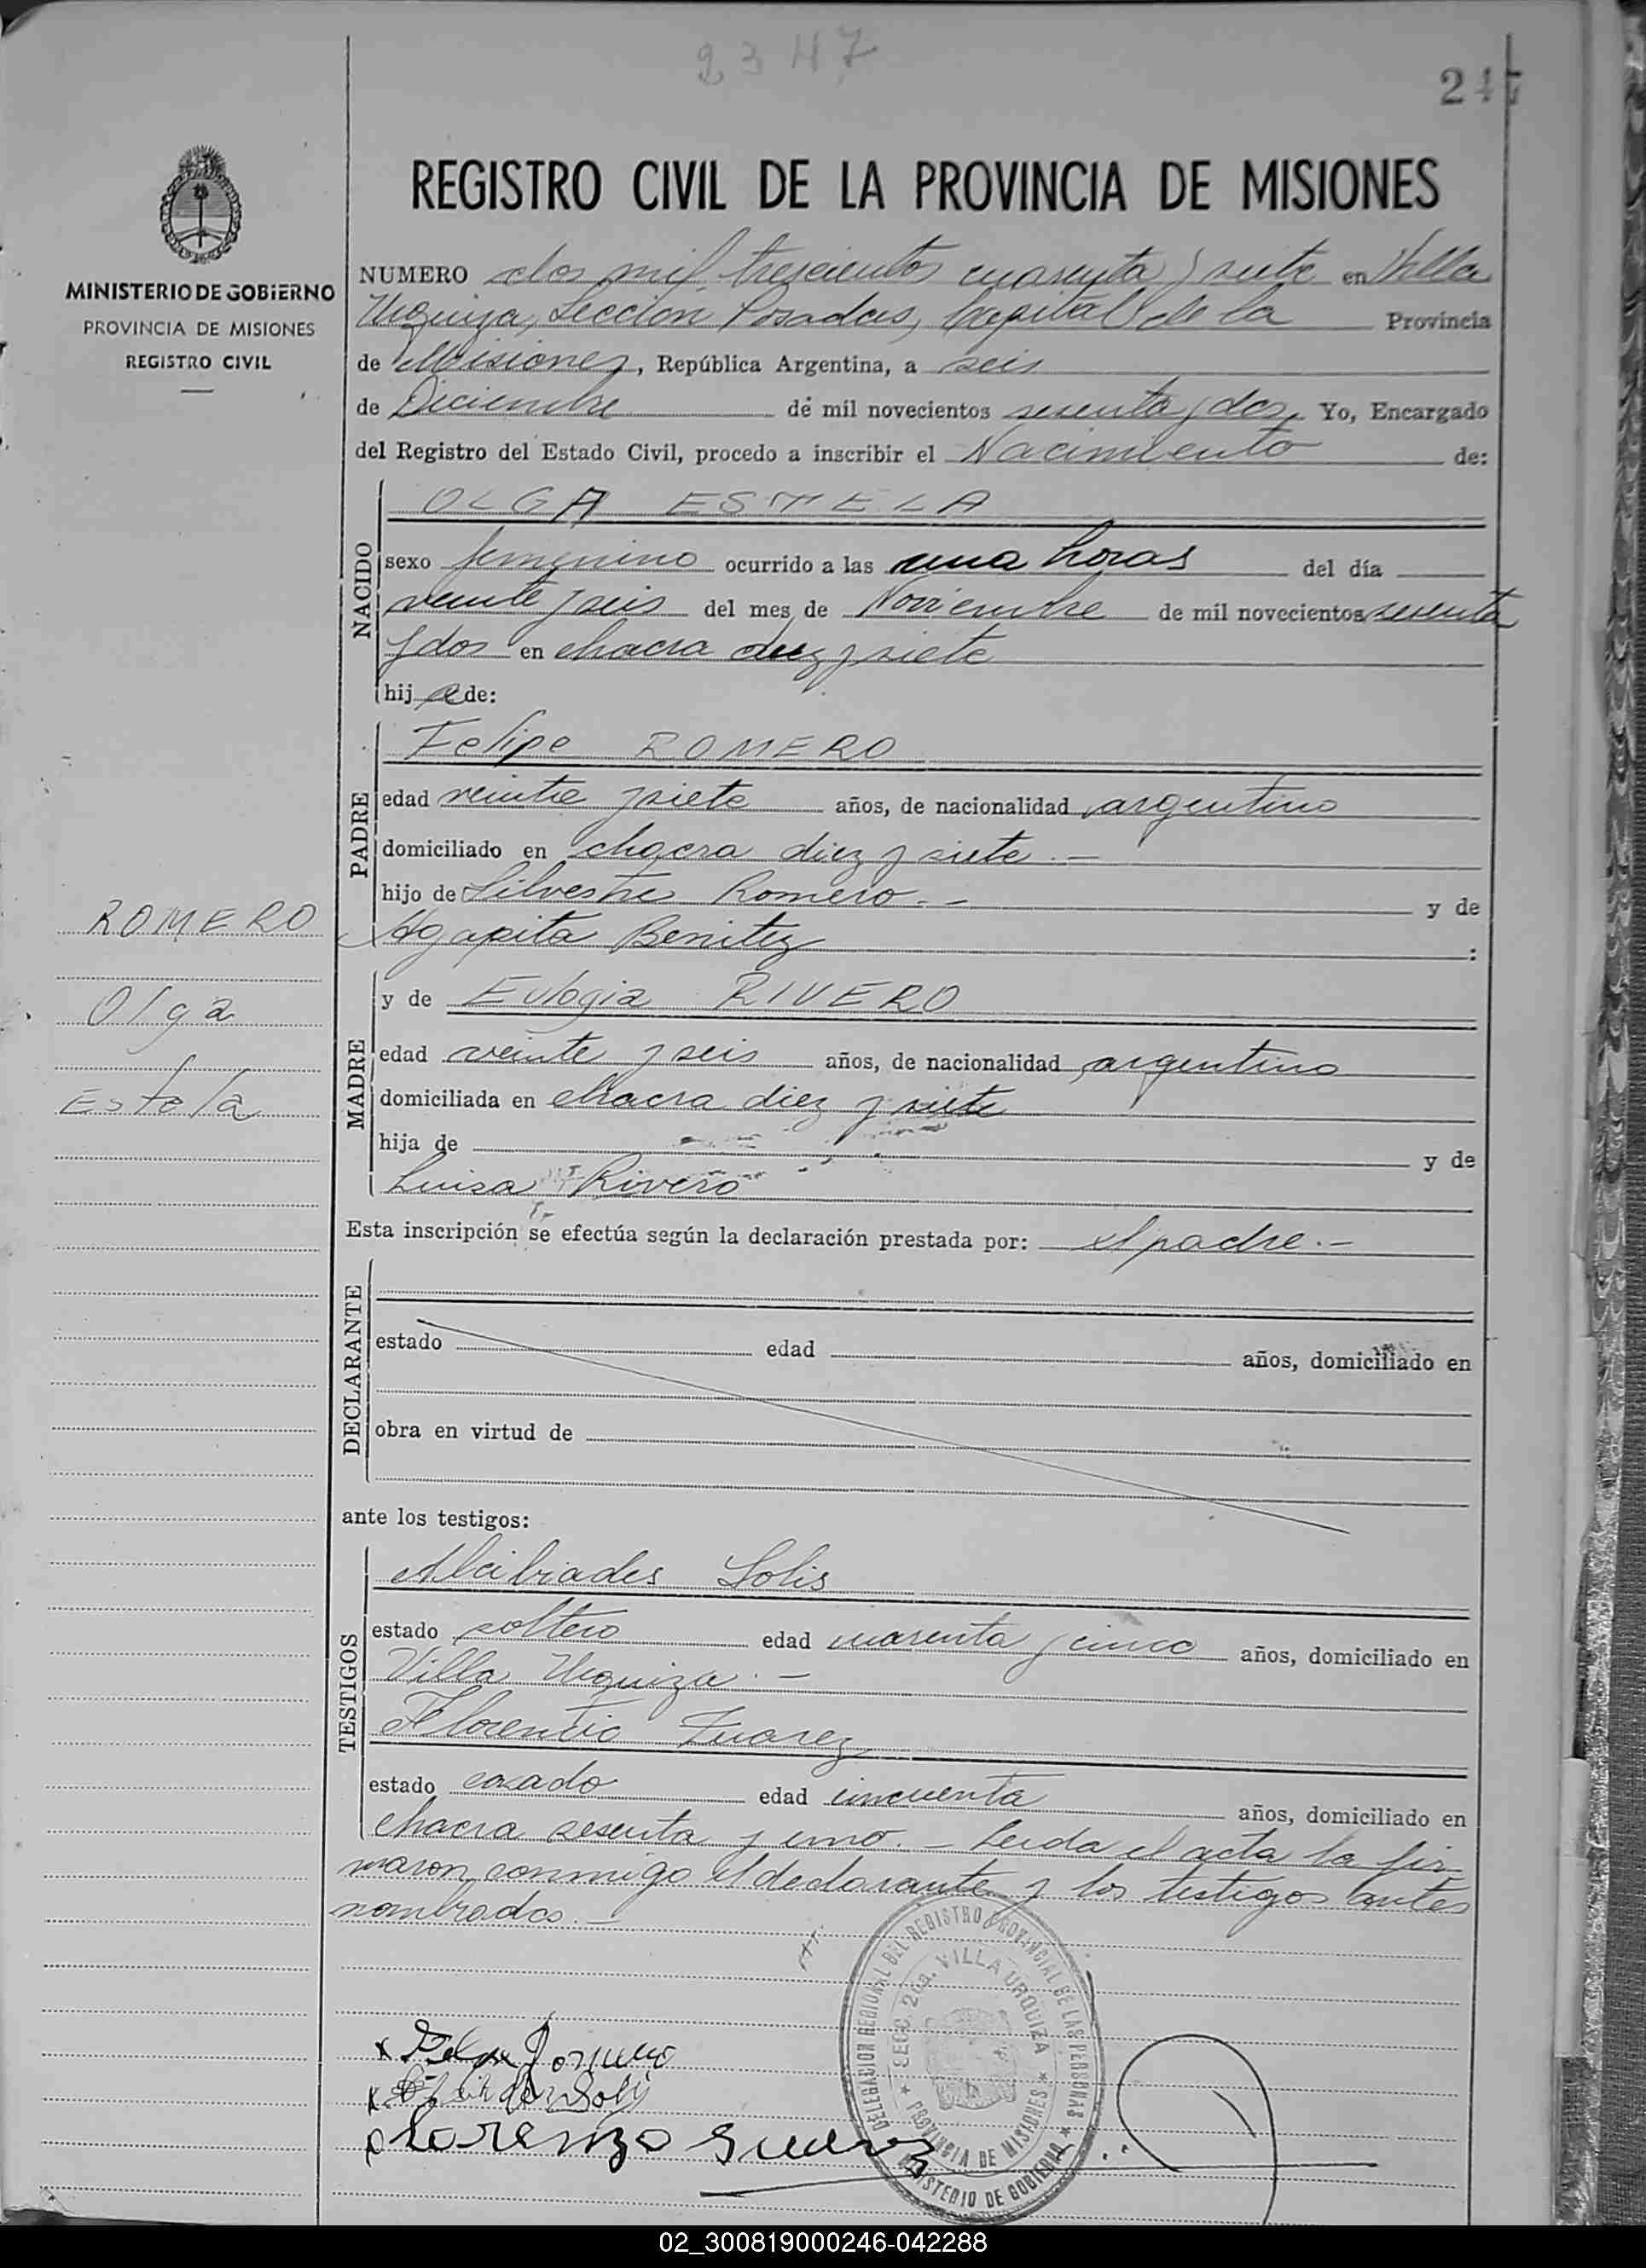 2347
247
REGISTRO CIVIL DE LA PROVINCIA DE MISIONES
MINISTERIO DE GOBIERNO
PROVINCIA DE MISIONES
REGISTRO CIVIL
NUMERO dos mil trescientos cuarenta y siete en Villa
Urquiza, Sección Posadas, Capital de la Provincia
de Misiones, República Argentina, a seis
de Diciembre de mil novecientos sesenta y dos, Yo, Encargado
del Registro del Estado Civil, procedo a inscribir el Nacimiento de:
NACIDO
OLGA ESTELA
sexo femenino ocurrido a las una horas del día
veinte y seis del mes de Noviembre de mil novecientos sesenta
y dos en chacra diez y siete
hij a de:
PADRE
Felipe ROMERO
edad veinte y siete años, de nacionalidad argentino
domiciliado en chacra diez y siete.-
hijo de Silvestre Romero.- y de
Agapita Benitez :
MADRE
y de Eulogia RIVERO
edad veinte y seis años, de nacionalidad argentino
domiciliada en chacra diez y siete
hija de y de
Luisa Rivero
ROMERO
Olga
Estela
Esta inscripción se efectúa según la declaración prestada por: el padre.-
DECLARANTE
estado edad años, domiciliado en
obra en virtud de
ante los testigos:
TESTIGOS
Alcibiades Solis
estado soltero edad cuarenta y cinco años, domiciliado en
Villa Urquiza.-
Florentio Suarez
estado casado edad cincuenta años, domiciliado en
chacra sesenta y uno.- Leida el acta la fir
maron conmigo el declarante y los testigos antes
nombrados.-
DELEGACION REGIONAL DEL REGISTRO PROVINCIAL DE LAS PERSONAS
SECC. 2da. VILLA URQUIZA
PROVINCIA DE MISIONES
MINISTERIO DE GOBIERNO
Solis
Lorenzo Suarez
02_300819000246-042288